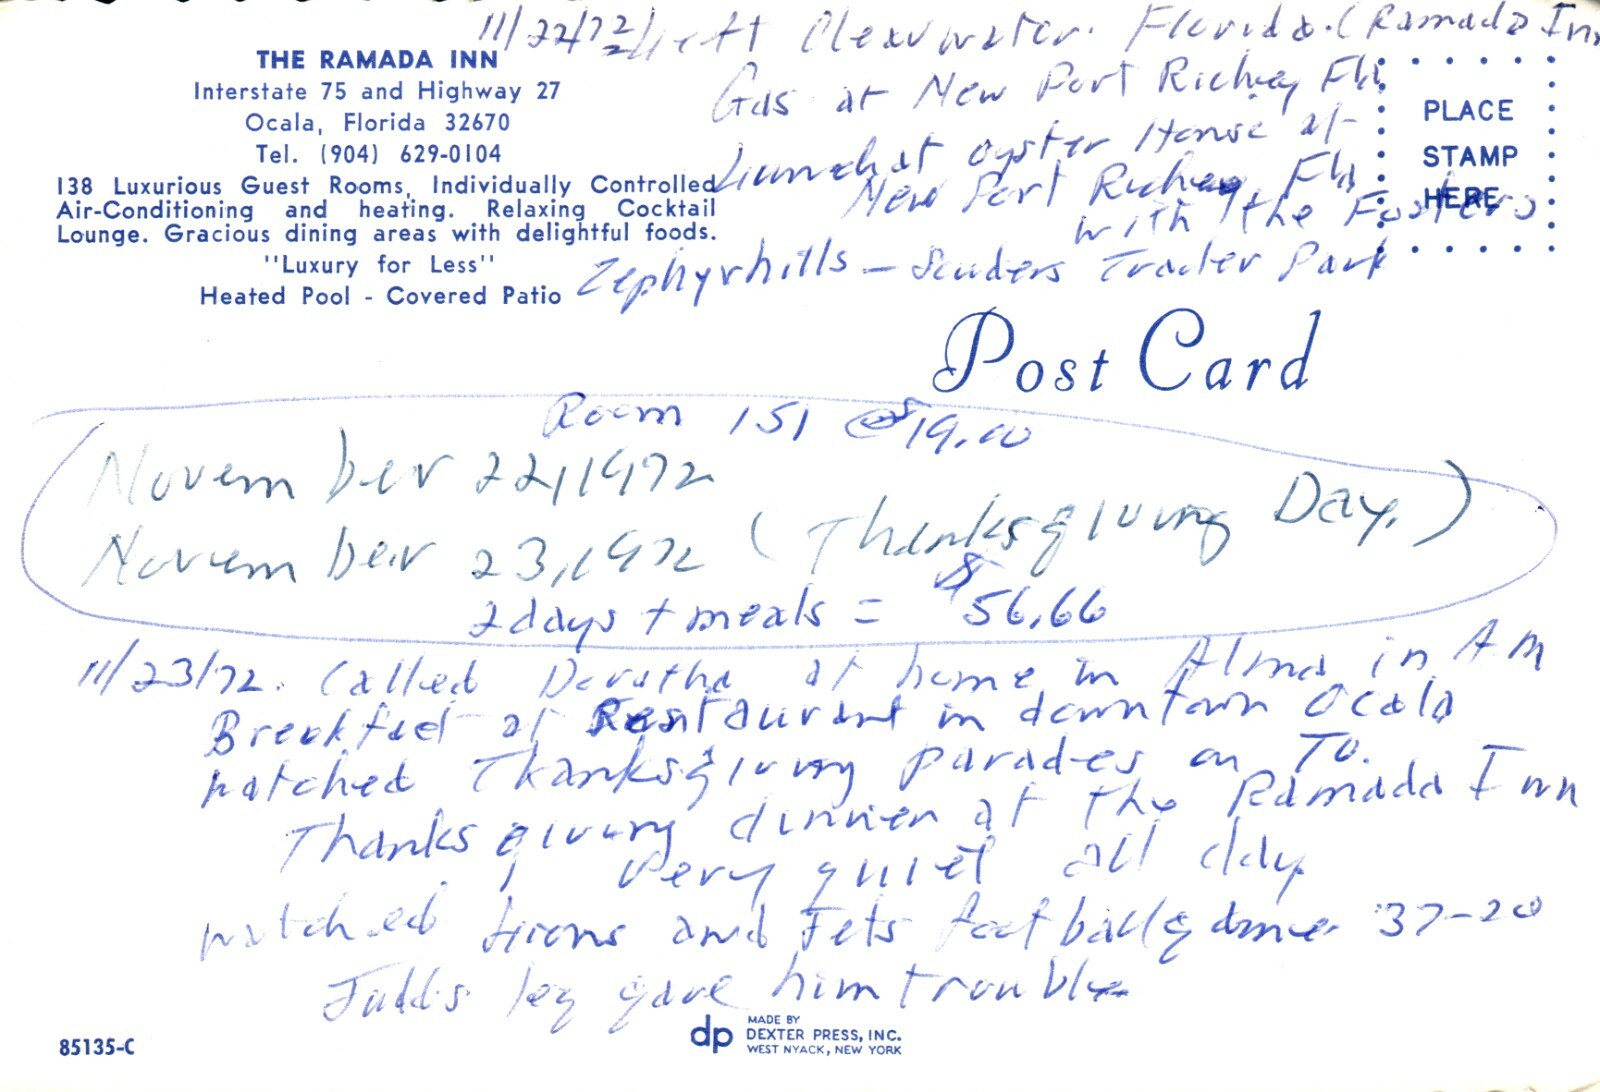 11/22/72/left Clearwater. Florida. (Ramada Inn
Gas at New Port Richey Fla.
Lunch at Oyster House at
New Port Richey Fla
with the Fosters
Zephyrhills — Trailer Park
THE RAMADA INN
Interstate 75 and Highway 27
Ocala, Florida 32670
Tel. (904) 629-0104
138 Luxurious Guest Rooms, Individually Controlled
Air-Conditioning and heating. Relaxing Cocktail
Lounge. Gracious dining areas with delightful foods.
"Luxury for Less"
Heated Pool - Covered Patio
PLACE
STAMP
HERE
Post Card
Room 151 @ $19.00
November 22, 1972
November 23, 1972 (Thanksgiving Day.)
2 days + meals = $56.66
11/23/72. Called Doratha at home in Alma in A.M
Breakfast at Restaurant in downtown Ocala
Watched Thanksgiving parades on TV.
Thanksgiving dinner at the Ramada Inn
Very quiet all day
Watched Lions and Jets football game 37-20
Judd's leg gave him trouble
85135-C
dp
MADE BY
DEXTER PRESS, INC.
WEST NYACK, NEW YORK